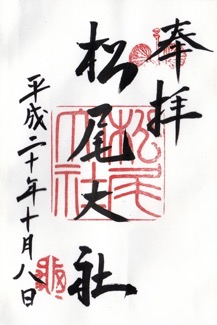 奉拝
松尾大社
平成二十年十月八日
松尾大社